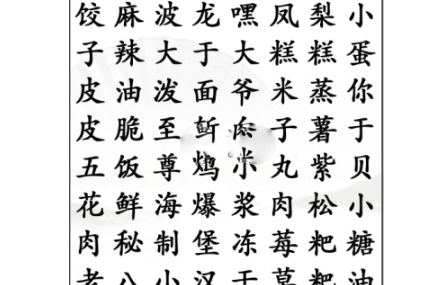 饺麻波龙嘿凤梨小
子辣大于大糕糕蛋
皮油泼面爷米蒸你
皮脆至子薯于
五饭尊小丸紫贝
花鲜海爆浆肉松小
肉秘制堡冻莓粑糖
老八小汉干草粑油